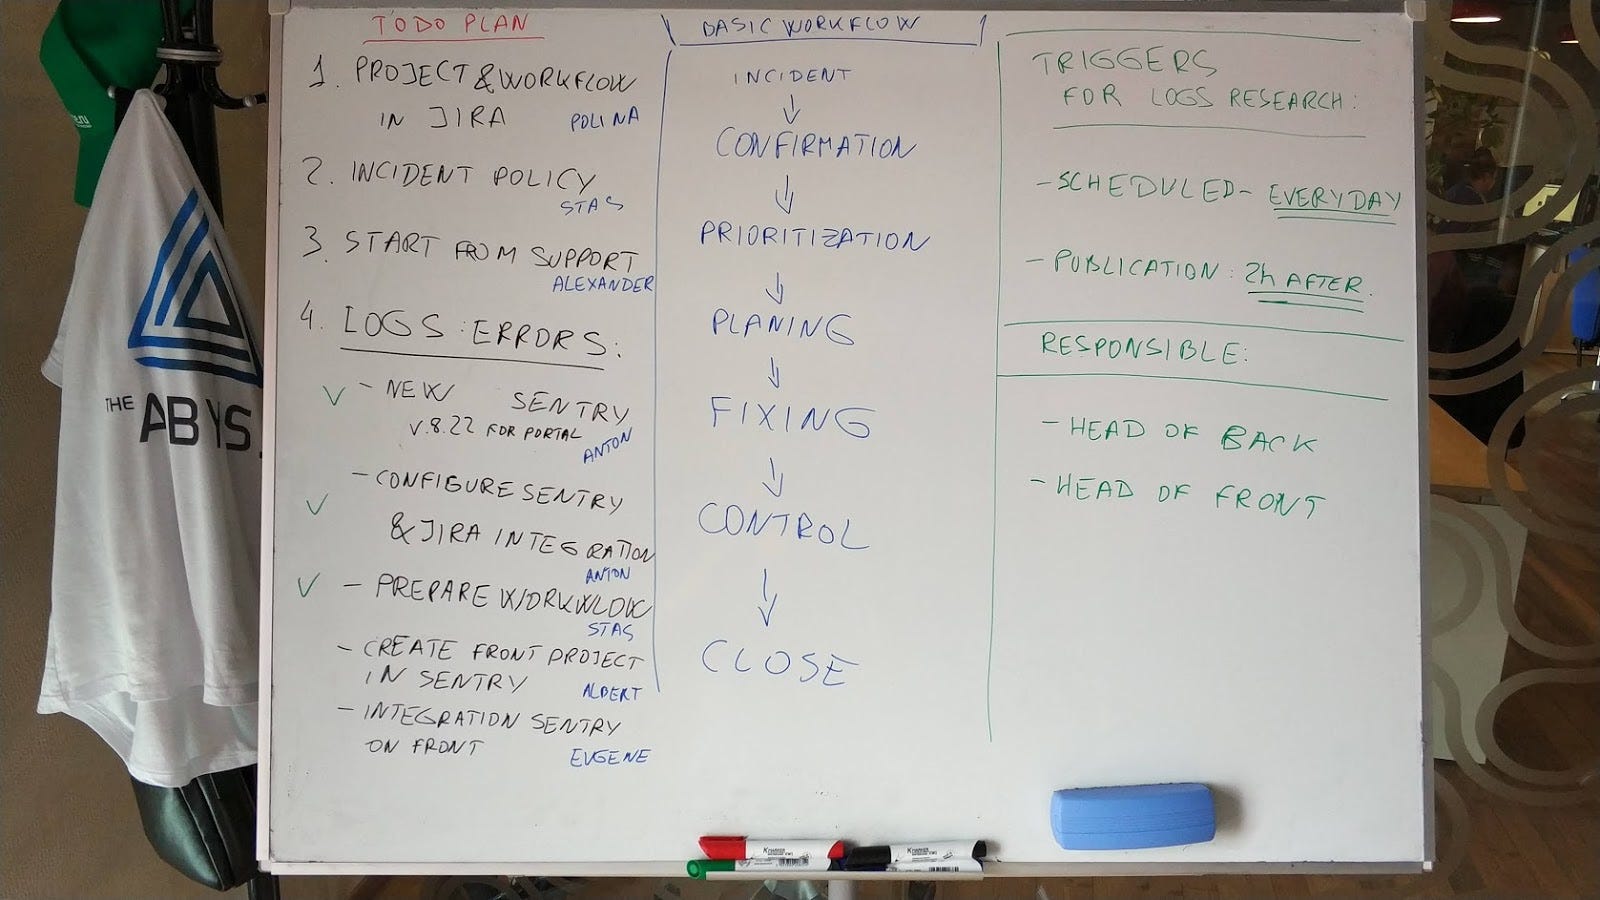 TODO PLAN
1. PROJECT & WORKFLOW
IN JIRA POLINA
2. INCIDENT POLICY
STAS
3. START FROM SUPPORT
ALEXANDER
4. LOGS : ERRORS:
V - NEW SENTRY
V.8.22 FOR PORTAL
ANTON
- CONFIGURE SENTRY
V & JIRA INTEGRATION
ANTON
V - PREPARE WORKWLOW
STAS
- CREATE FRONT PROJECT
IN SENTRY ALBERT
- INTEGRATION SENTRY
ON FRONT EVGENE
BASIC WORKFLOW
INCIDENT
↓
CONFIRMATION
↓
PRIORITIZATION
↓
PLANING
↓
FIXING
↓
CONTROL
↓
CLOSE
TRIGGERS
FOR LOGS RESEARCH:
- SCHEDULED - EVERYDAY
- PUBLICATION: 2h AFTER.
RESPONSIBLE:
- HEAD OF BACK
- HEAD OF FRONT
THE
ABYSS.